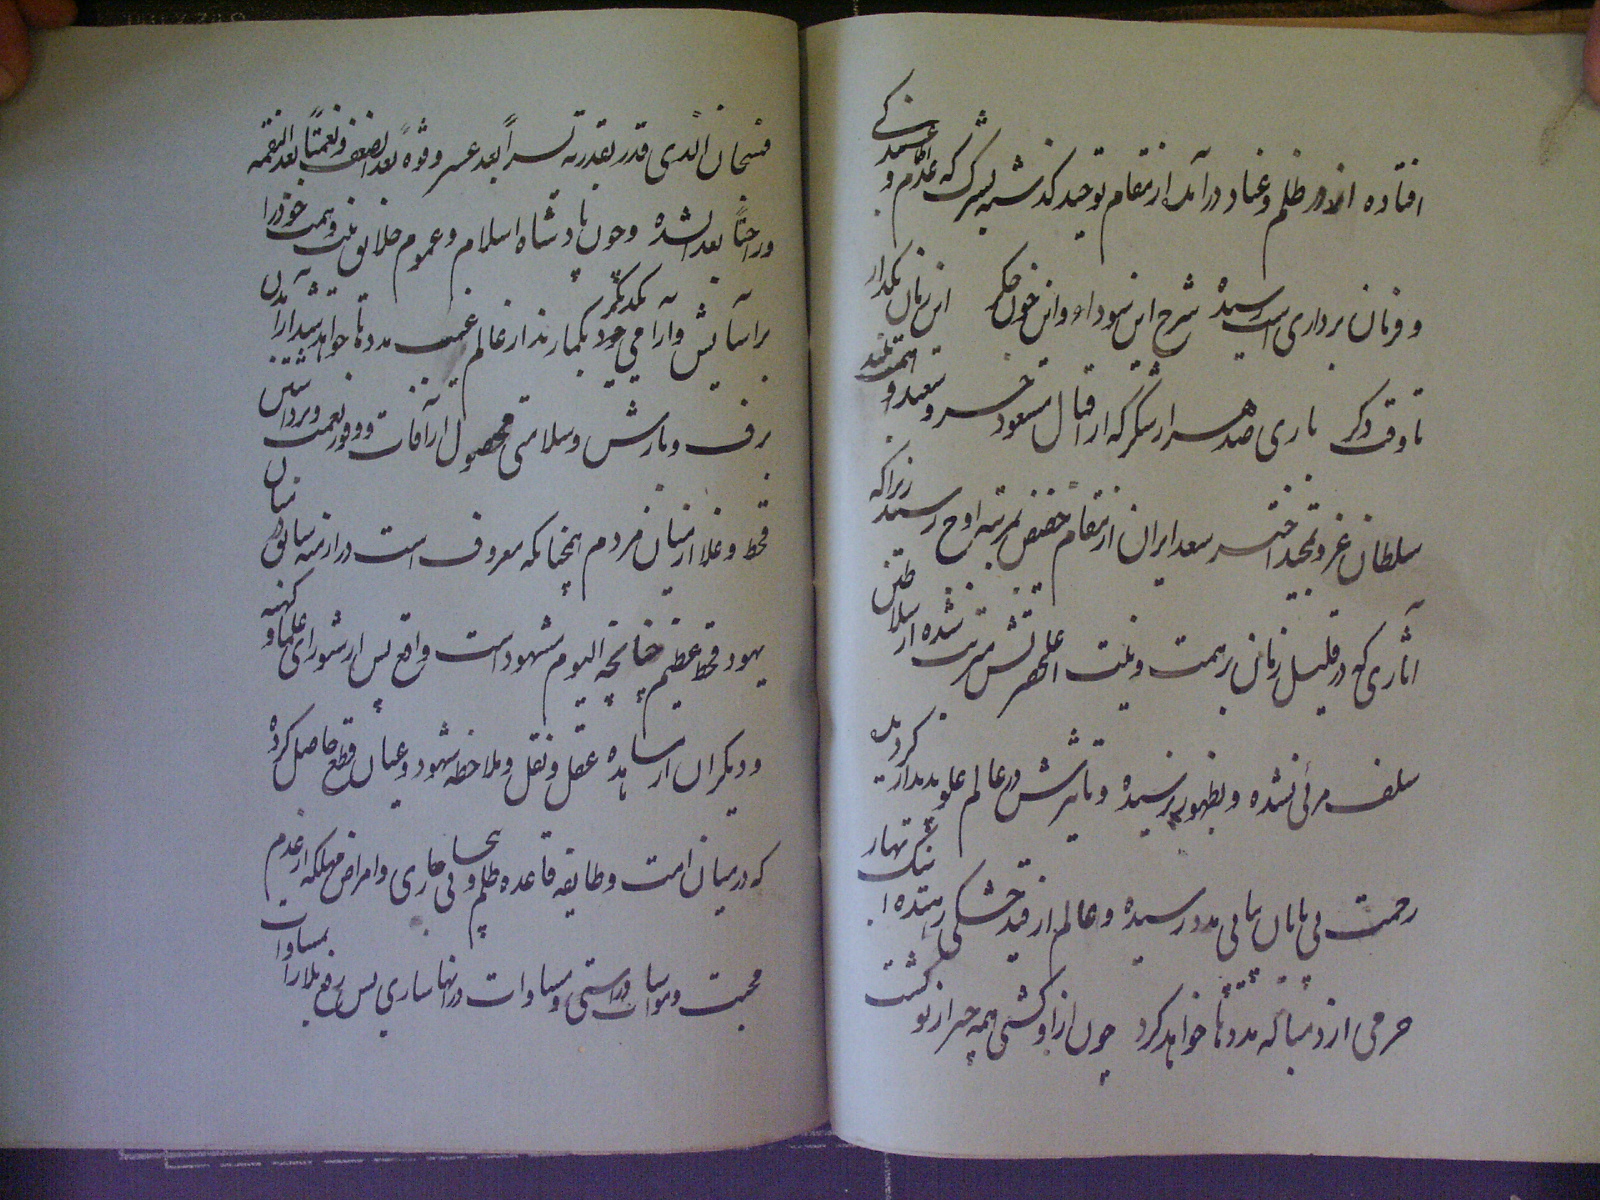 افتاده اند در ظلم و عناد درآمد از مقام توحید گذشته بشرک که عدم و
و فرمان برداری است رسیده شرح این سودا و این خون جگر این زمان بگذار
تا وقت دگر باری صد هزار شکر که از اقبال مسعود خسرو سعید و همت بلند
سلطان عز و تمجید اختر سعد ایران از مقام حضیض بمرتبه اوج رسید زیرا که
آثاری که در قلیل زمان بر همت و نیت اعلیحضرتش مترتب شده از سلاطین
سلف مرئی نشده و بظهور نرسیده و تاثیرش در عالم علو پدیدار گردیده
رحمت بی پایان پیاپی مدد رسیده و عالم از قید خشکی رهیده
خرمی از دنبا که مددها خواهد کرد چون از او گشتی همه چیز از تو گشت
فسبحان الذی قدر بقدرته یسراً بعد عسر و قوةً بعد الضعف و نعمتاً بعد النقمه
و راحتاً بعد الشده و چون پادشاه اسلام و عموم خلایق نیت و همت خود را
بر آسایش و آرامی خود یکدیگر بگمارند از عالم غیب مددها خواهد رسید از آمدن
برف و بارش و سلامتی محصول از آفات و وفور نعمت و برداشتن
قحط و غلا از میان مردم همچنانکه معروف است در ازمنه سابق میان
یهود قحط عظیم چنانچه الیوم مشهود است واقع پس از شورای علما و کهنه
و دیگران از مشاهده عقل و نقل و ملاحظه شهود و عیان قطع حاصل کرده
که در میان امت و طایفه قاعده ظلم و بی حسابی جاری و امراض مهلکه از عدم
محبت و مواسات و راستی و مساوات در آنها ساری پس رفع بلا را بمساوات